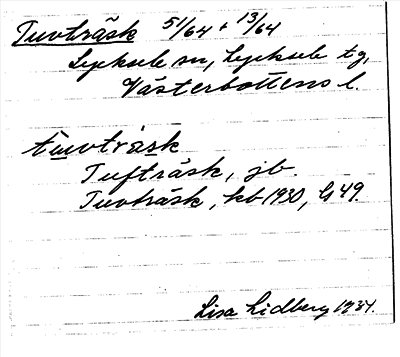 Tuvträsk 5/64 + 13/64
Lycksele sn, Lycksele tg,
Västerbottens l.
tuvträsk
Tufträsk, jb.
Tuvträsk, kb 1930, G 49.
Lisa Lidberg 1934.